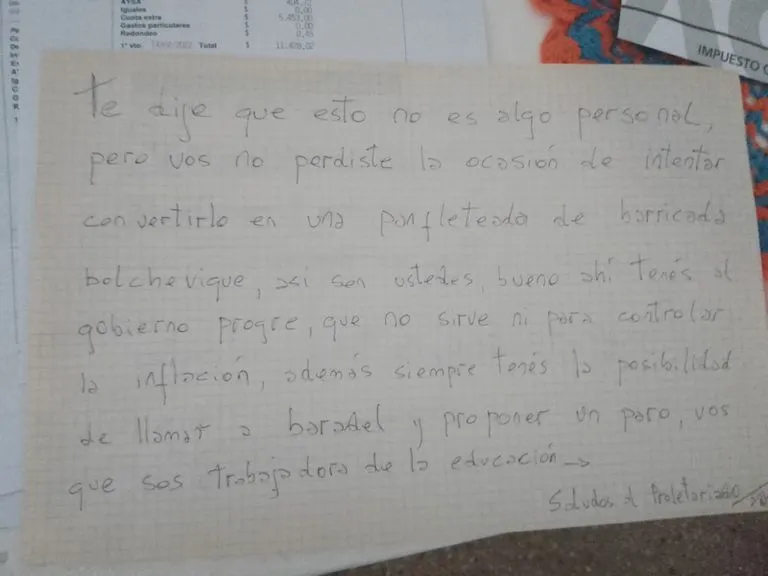 AYSA $ 404,72
Iguales $ 0,00
Cuota extra $ 5.453,00
Gastos particulares $ 0,00
Redondeo $ 0,45
1° vto: 14/02/2022 Total $ 11.428,02
IMPUESTO
Te dije que esto no es algo personal,
pero vos no perdiste la ocasión de intentar
convertirlo en una panfleteada de barricada
bolchevique, asi son ustedes, bueno ahí tenés al
gobierno progre, que no sirve ni para controlar
la inflación, además siempre tenés la posibilidad
de llamar a baradel y proponer un paro, vos
que sos trabajadora de la educación →
Saludos al Proletariado